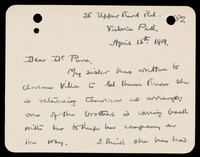 25 Upper Park Rd.
Victoria Park.
April 15th 1919.
Dear Dr
My sister has written to
Villa to let them know she
is returning tomorrow as arranged;
one of the brothers is coming back
with her to keep her company on
the way. I think she has had